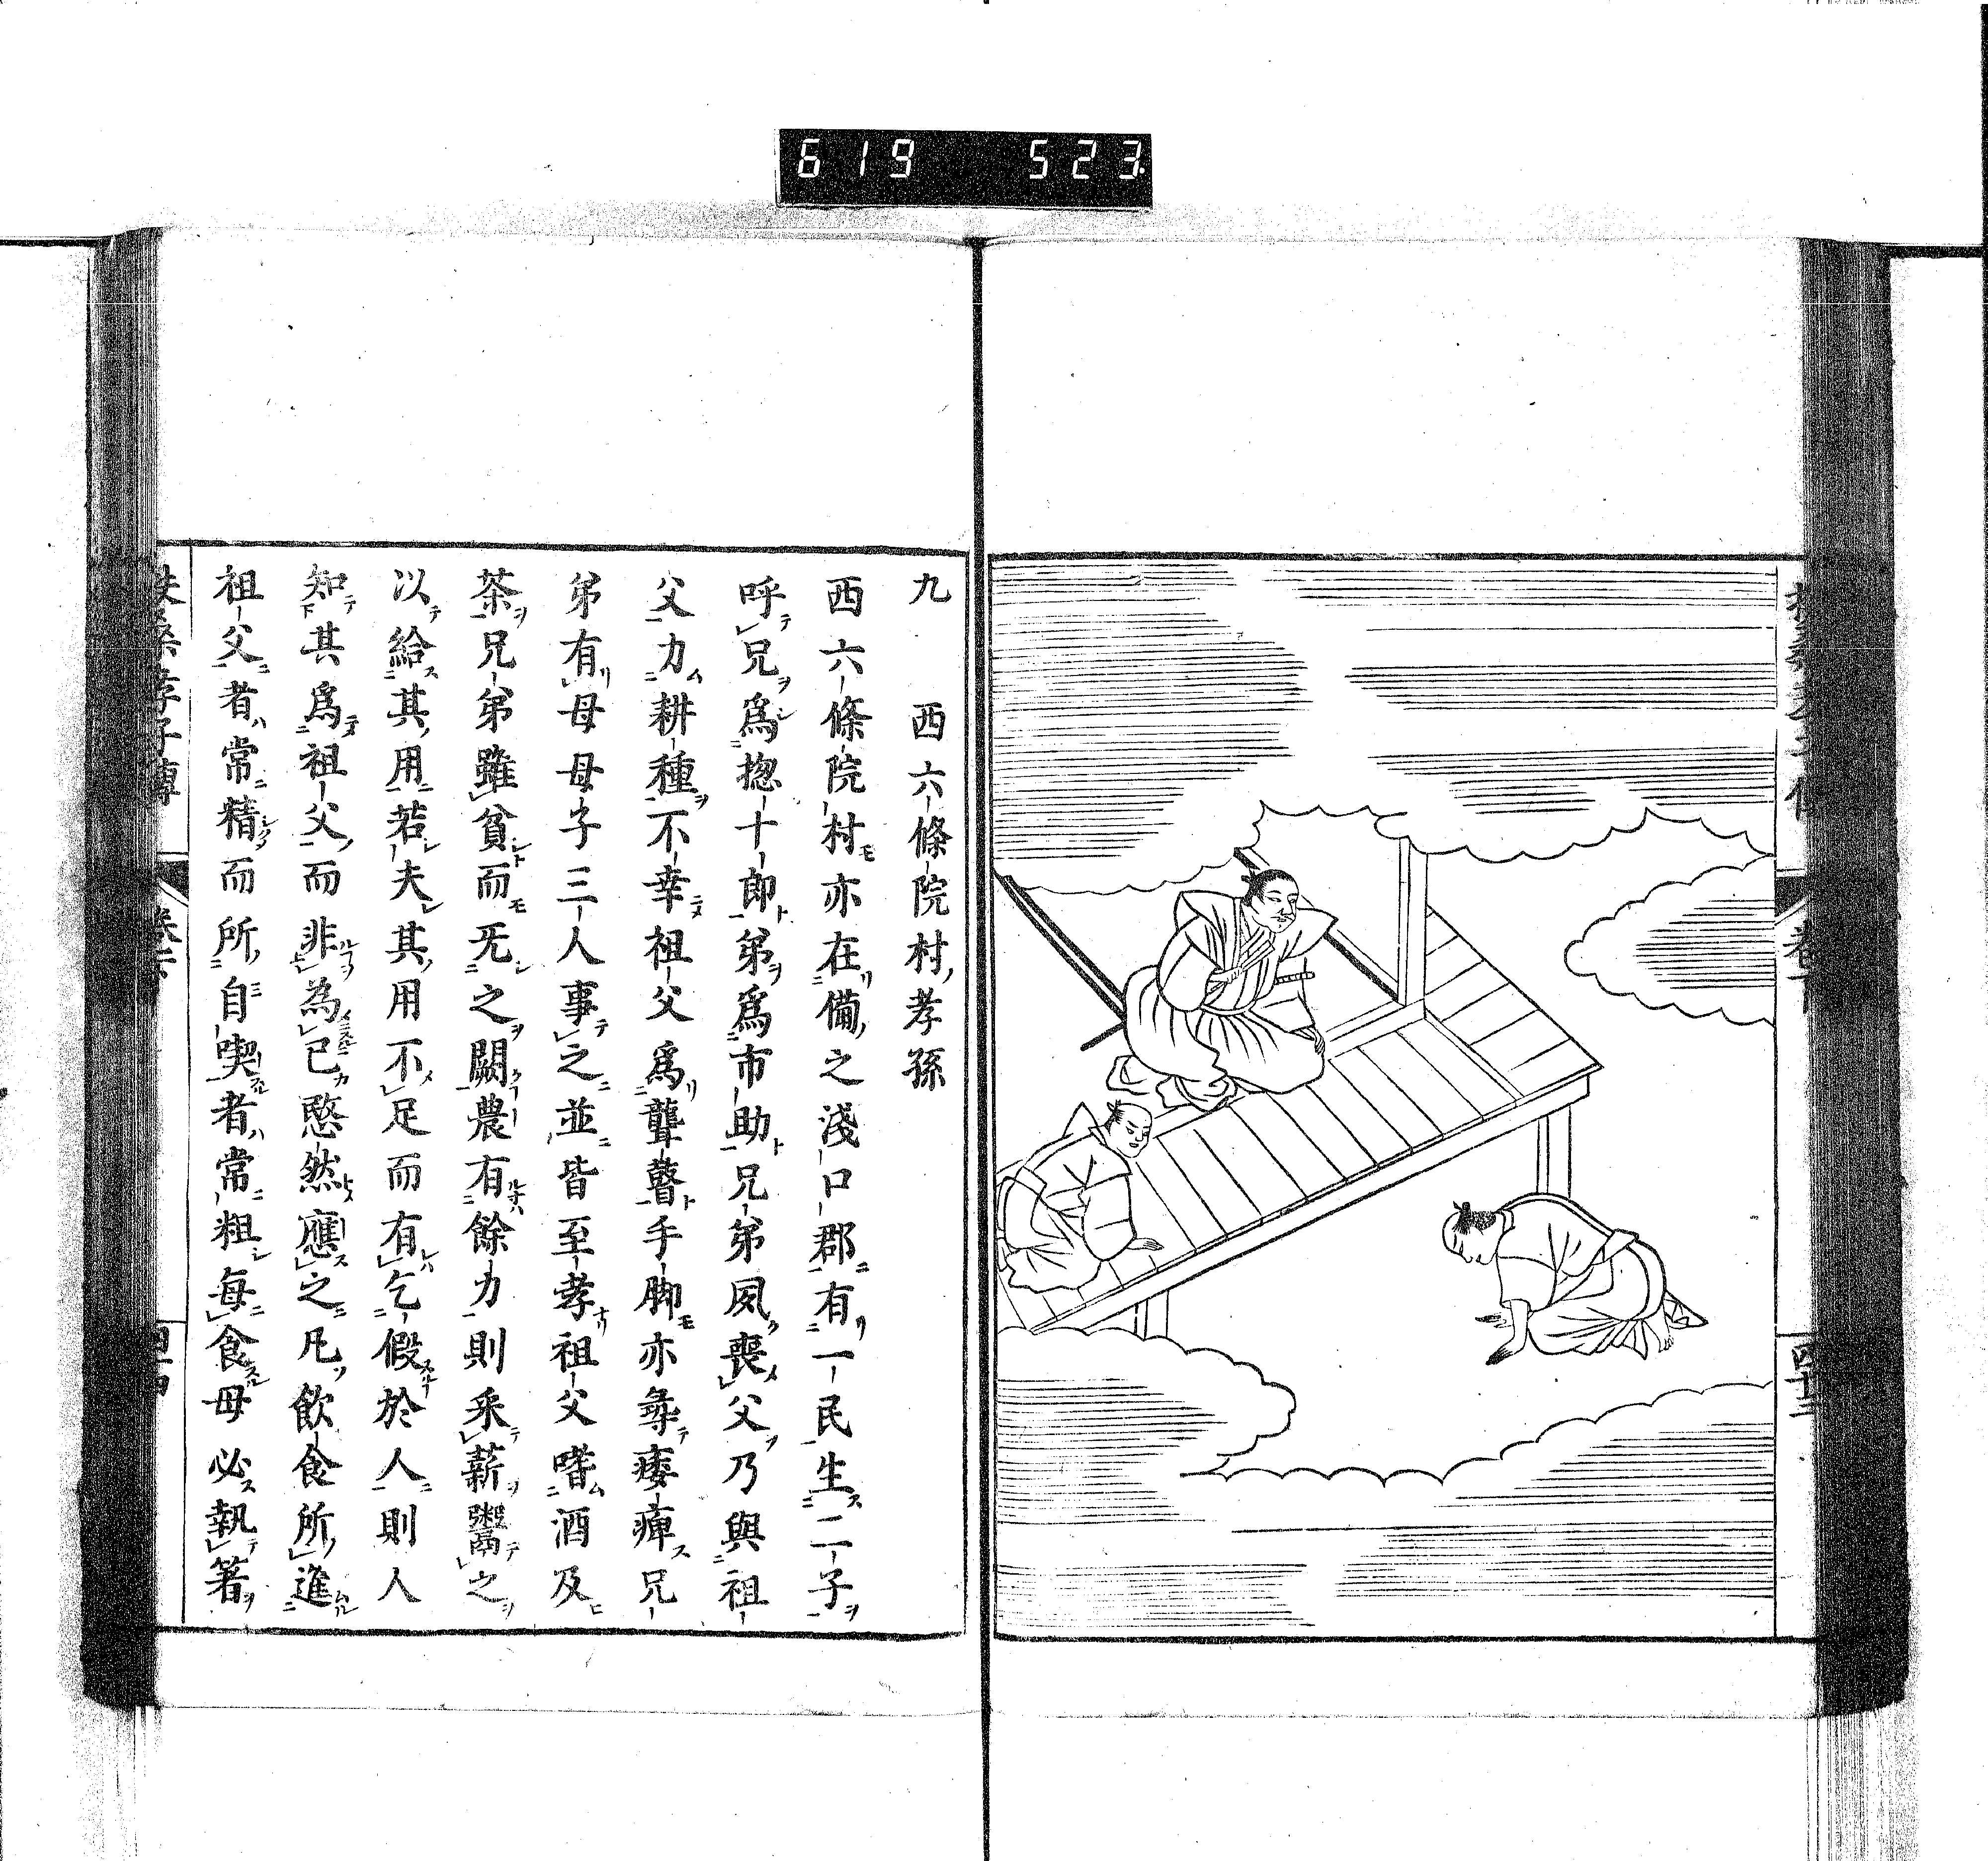 619 523
九 西六條院村孝孫
西六條院村亦在備之淺口郡有一民生二子
呼兄爲揔十郎弟爲市助兄弟夙喪父乃與祖
父力耕種不幸祖父爲聾瞽手脚亦攣痿痺兄
弟有母母子三人事之並皆至孝祖父嗜酒及
茶兄弟雖貧而无之闕農有餘力則采薪鬻之
以給其用若夫其用不足而有乞假於人則人
知其爲祖父而非為已愍然應之凡飲食所進
祖父者常精而所自喫者常粗每食母必執箸